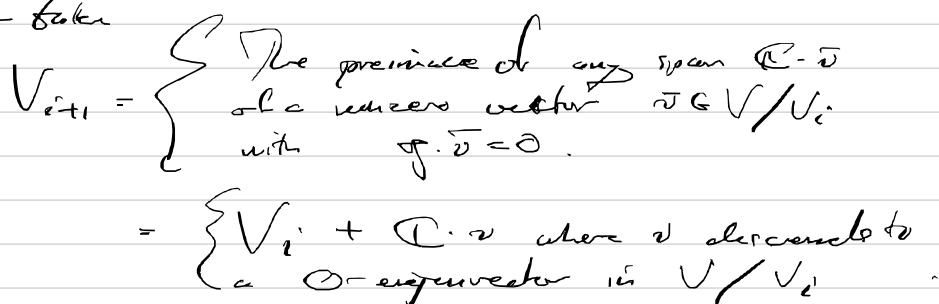 - take
V_{i+1} = { The preimage of any span ℂ·v̄
of a nonzero vector v̄ ∈ V/V_i
with 𝔤·v̄ = 0.
= { V_i + ℂ·v where v descends to
a 0-eigenvector in V/V_i .